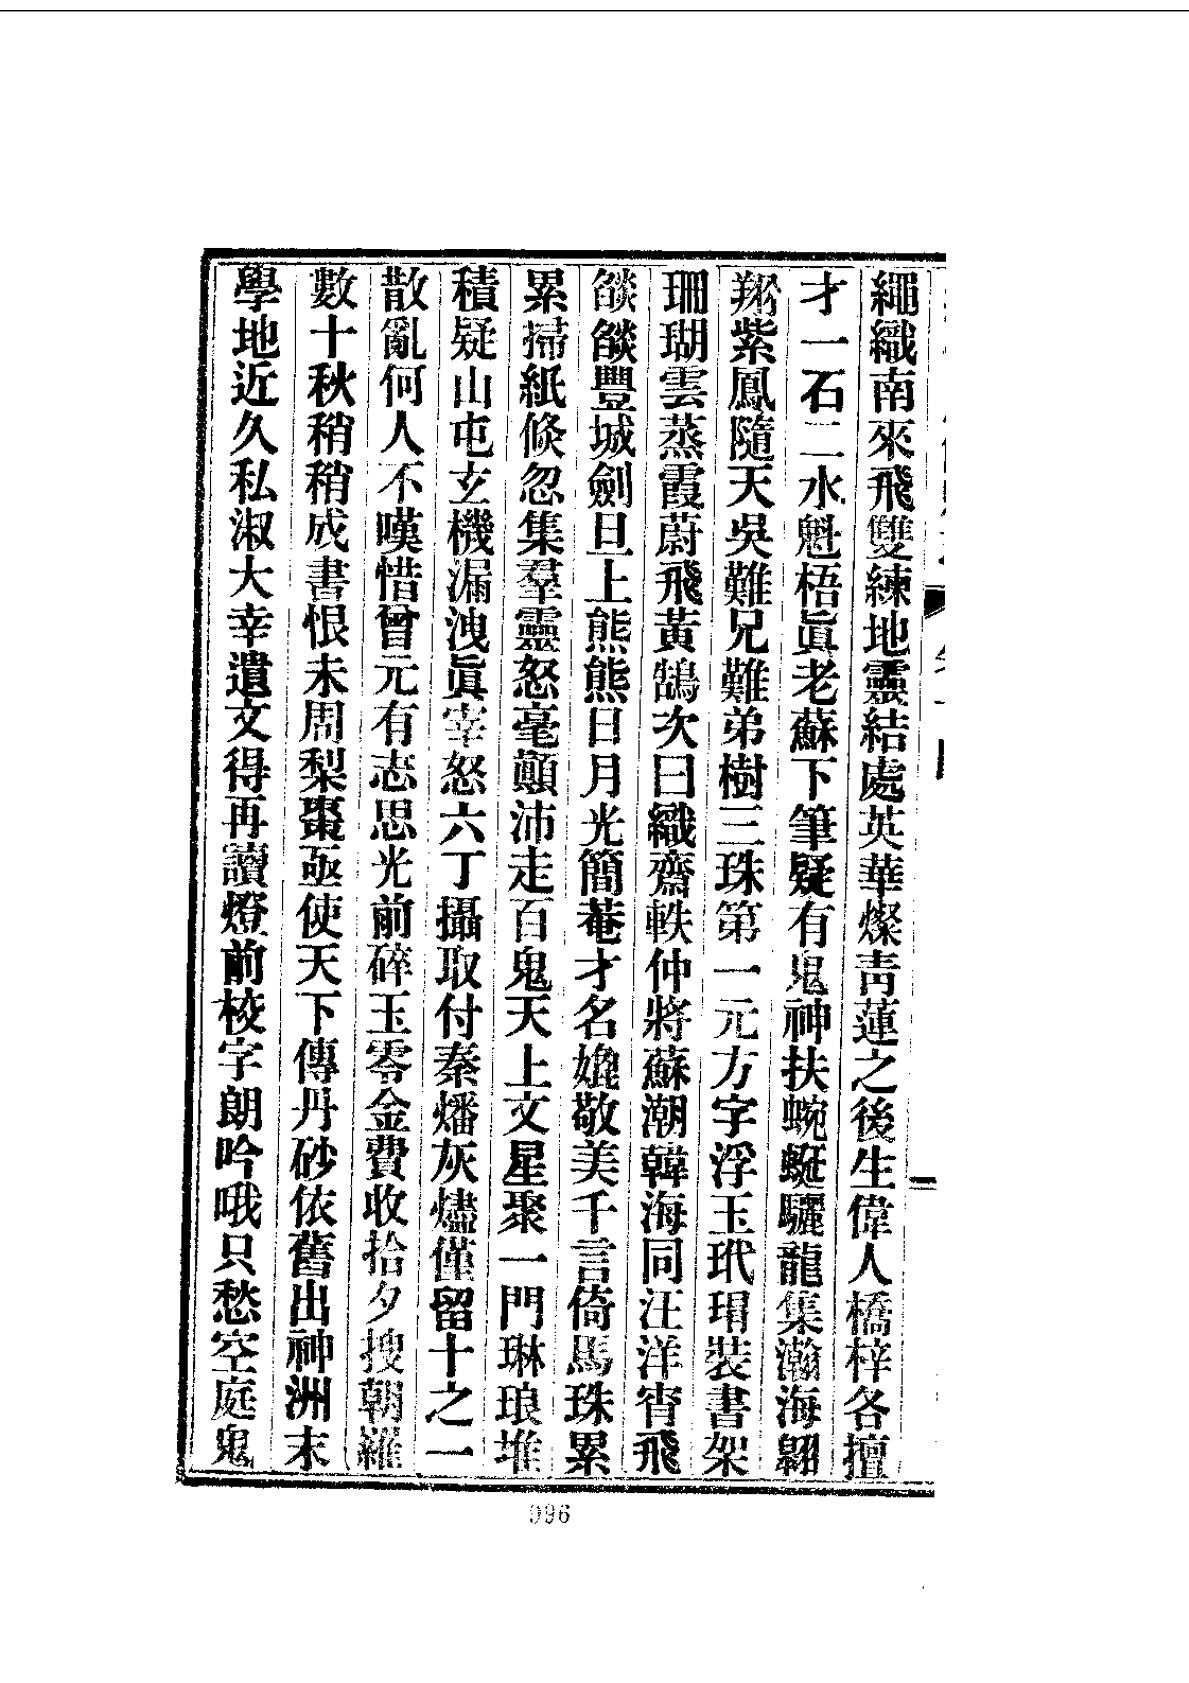 繩織南來飛雙練地靈結處英華燦青蓮之後生偉人橋梓各擅
才一石二水魁梧眞老蘇下筆疑有鬼神扶蜿蜒驪龍集瀚海翱
翔紫鳳隨天吳難兄難弟樹三珠第一元方字浮玉玳瑁裝書架
珊瑚雲蒸霞蔚飛黃鵠次曰織齋軼仲將蘇潮韓海同汪洋宵飛
燄燄豐城劍旦上熊熊日月光簡菴才名媲敬美千言倚馬珠累
累掃紙倏忽集羣靈怒毫顛沛走百鬼天上文星聚一門琳琅堆
積疑山屯玄機漏洩眞宰怒六丁攝取付秦燔灰燼僅留十之一
散亂何人不嘆惜曾元有志思光前碎玉零金費收拾夕搜朝羅
數十秋稍稍成書恨未周梨棗亟使天下傳丹砂依舊出神洲末
學地近久私淑大幸遺文得再讀燈前校字朗吟哦只愁空庭鬼
096